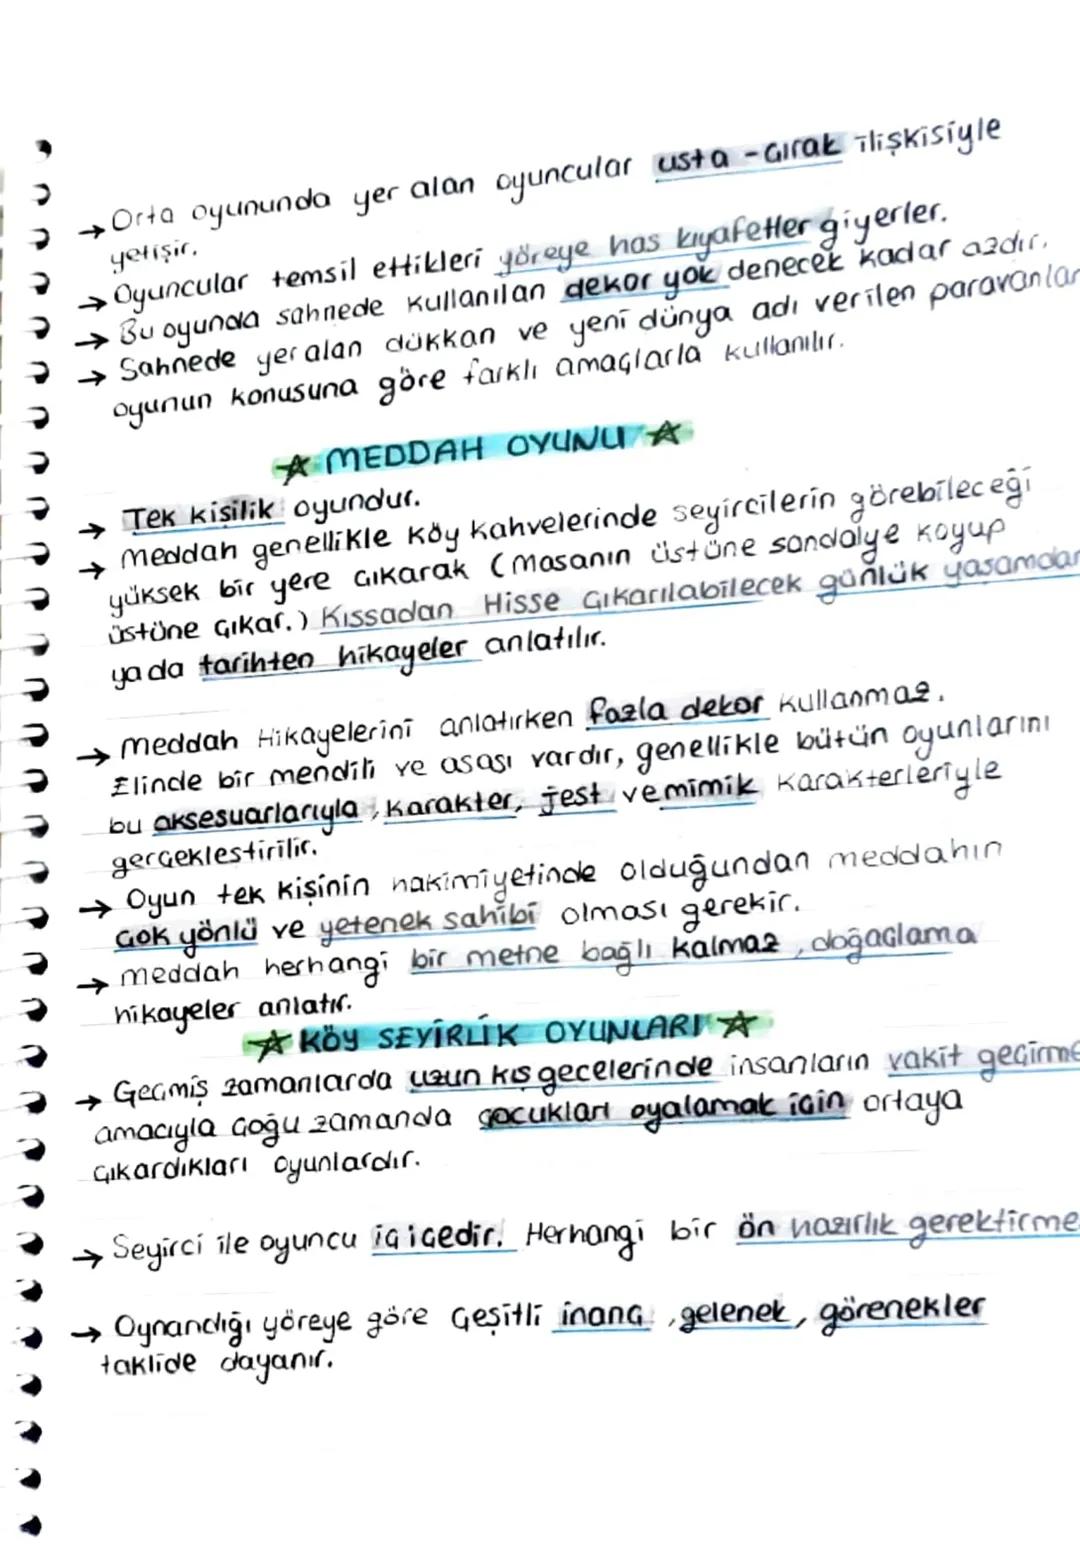 → Orta oyununda yer alan oyuncular usta - çırak ilişkisiyle
yetişir.
→ Oyuncular temsil ettikleri yöreye has kıyafetler giyerler.
→ Bu oyunda sahnede kullanılan dekor yok denecek kadar azdır.
→ Sahnede yer alan dükkan ve yeni dünya adı verilen paravanlar
oyunun konusuna göre farklı amaçlarla kullanılır.
☆ MEDDAH OYUNU ☆
→ Tek kişilik oyundur.
→ Meddah genellikle köy kahvelerinde seyircilerin görebileceği
yüksek bir yere çıkarak (Masanın üstüne sandalye koyup
üstüne çıkar.) Kıssadan Hisse çıkarılabilecek günlük yaşamdan
ya da tarihten hikayeler anlatılır.
→ Meddah Hikayelerini anlatırken fazla dekor kullanmaz.
Elinde bir mendili ve asası vardır, genellikle bütün oyunlarını
bu aksesuarlarıyla, karakter, jest ve mimik karakterleriyle
gerçekleştirilir.
→ Oyun tek kişinin hakimiyetinde olduğundan meddahın
çok yönlü ve yetenek sahibi olması gerekir.
→ meddah herhangi bir metne bağlı kalmaz, doğaçlama
hikayeler anlatır.
☆ KÖY SEYİRLİK OYUNLARI ☆
→ Geçmiş zamanlarda uzun kış gecelerinde insanların vakit geçirme
amacıyla çoğu zamanda çocukları oyalamak için ortaya
çıkardıkları oyunlardır.
→ Seyirci ile oyuncu iç içedir. Herhangi bir ön hazırlık gerektirme
→ Oynandığı yöreye göre çeşitli inanç, gelenek, görenekler
taklide dayanır.